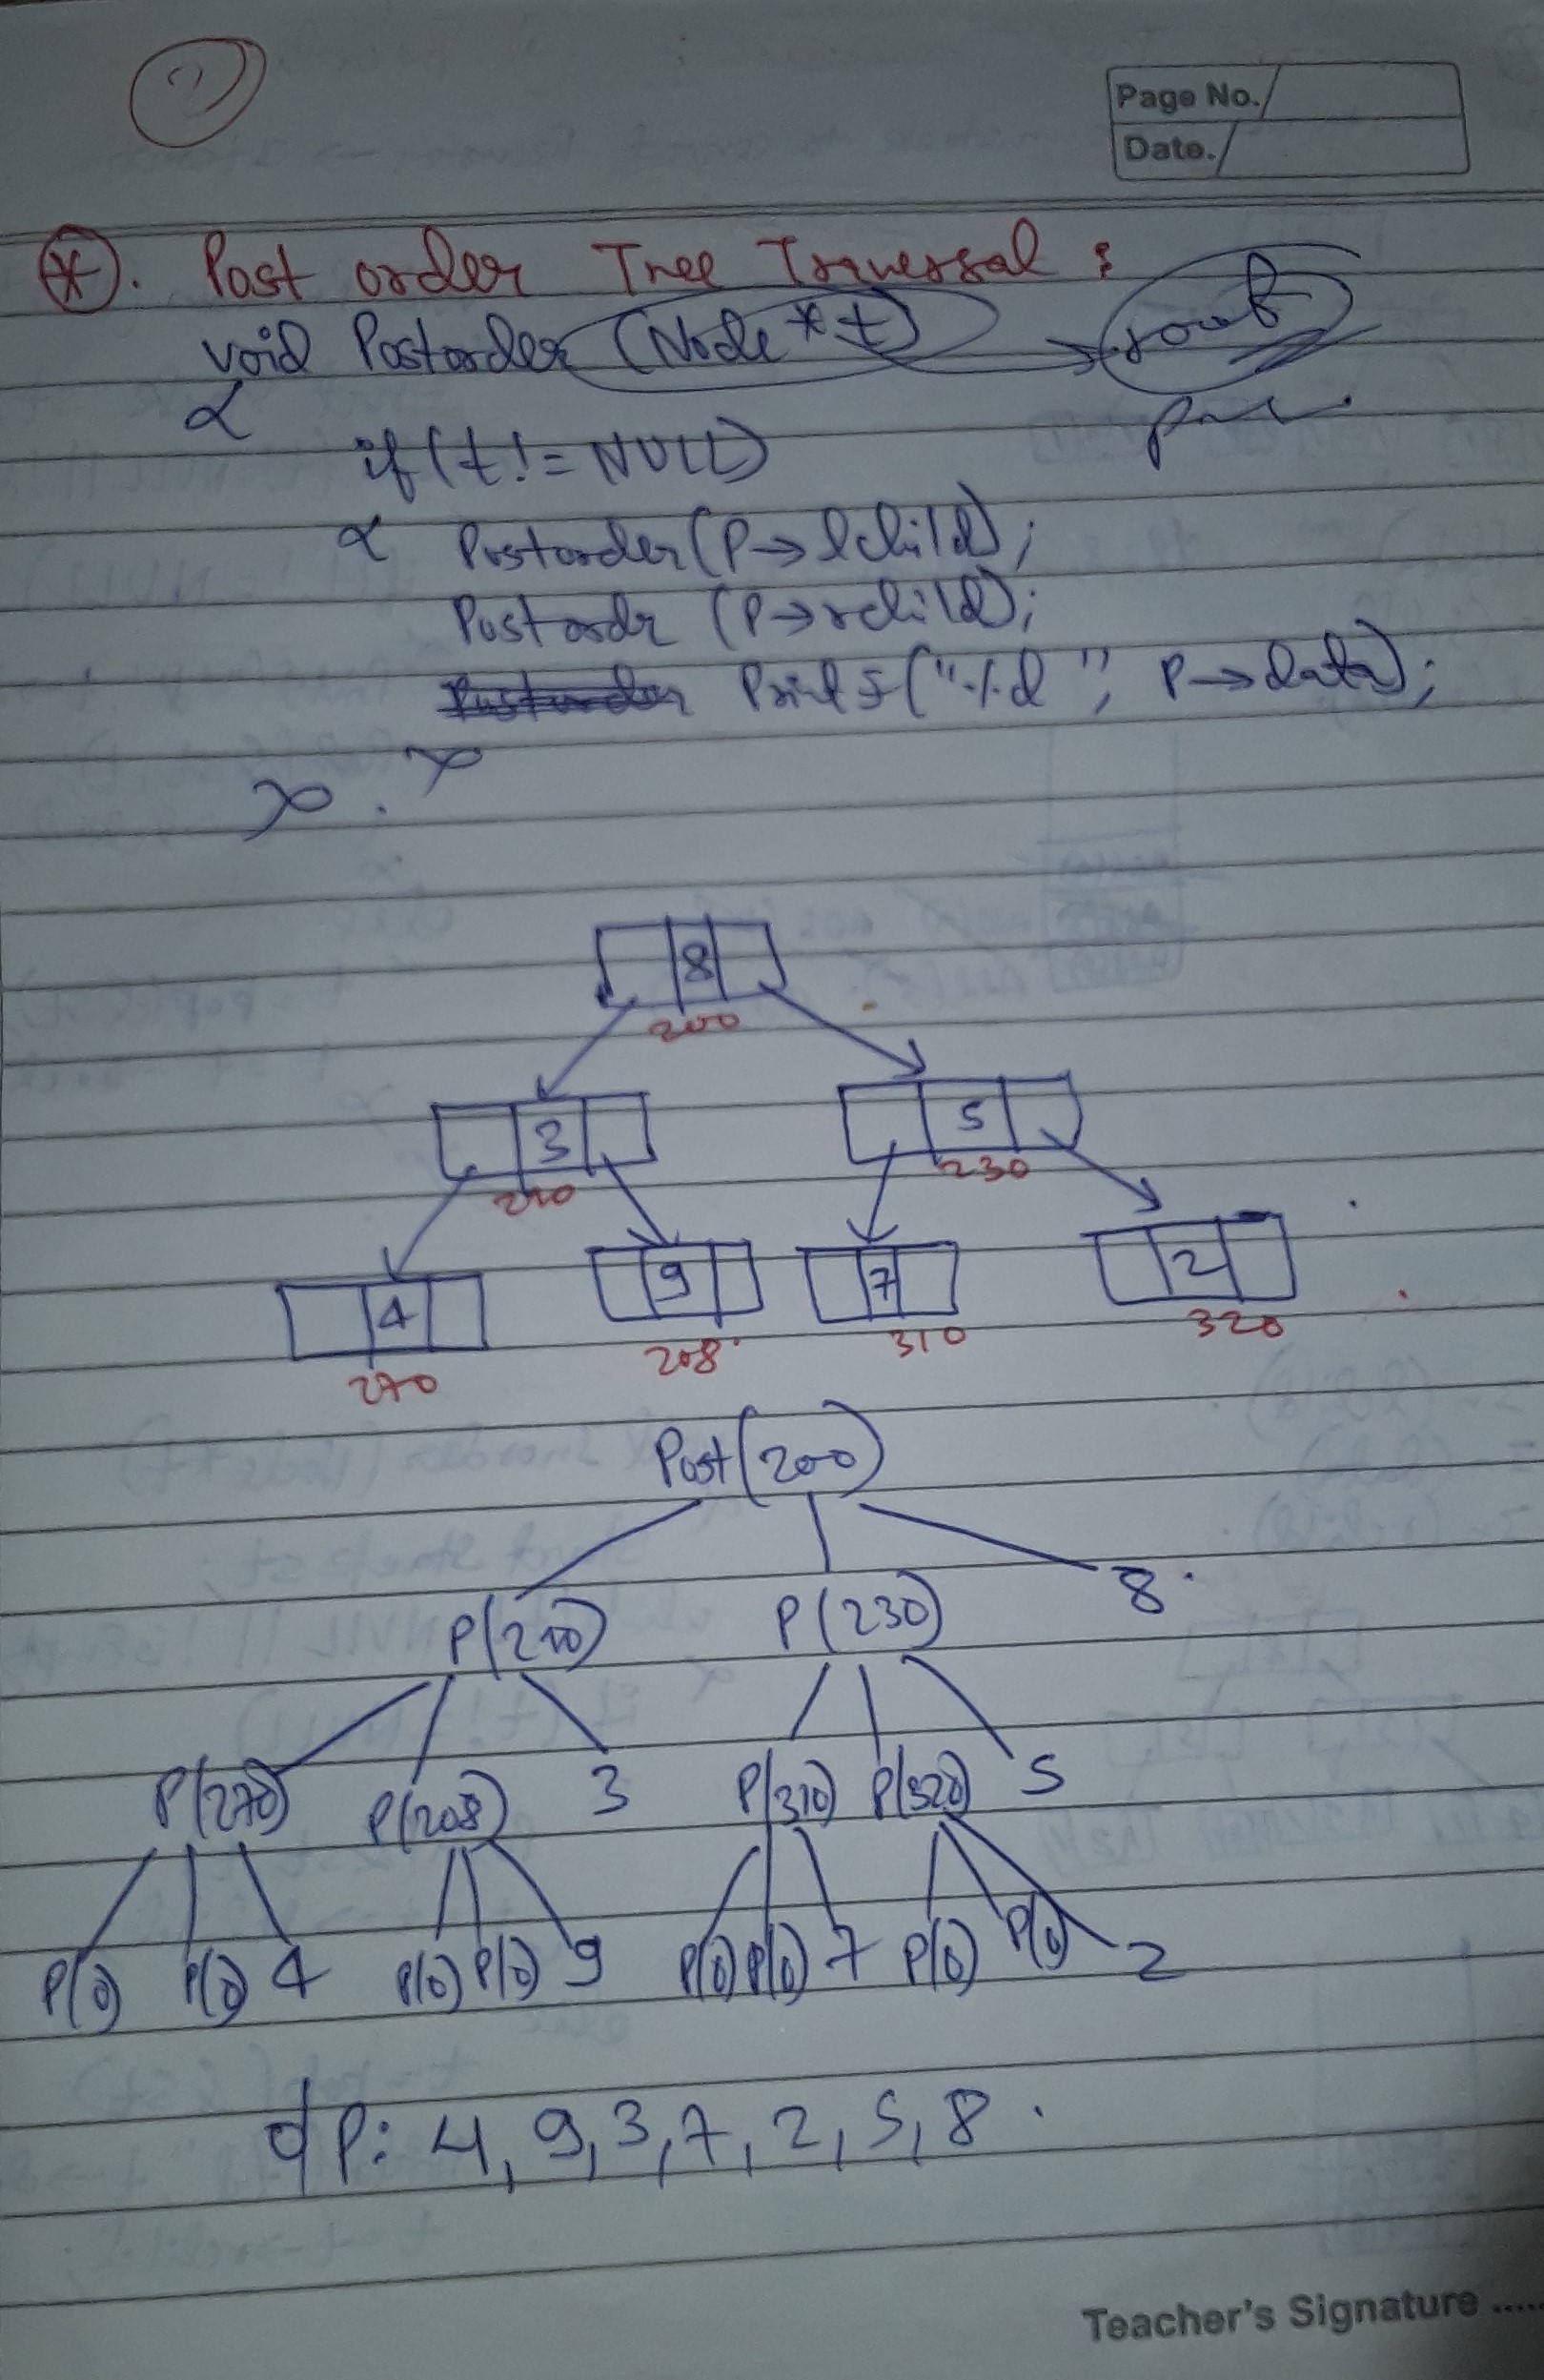 Page No.
Date.
* Post order Tree Traversal :
void Postorder (Node * t) → root
{
if (t != NULL)
{ Postorder (P→lchild);
Postorder (P→rchild);
Printf ("%d", P→data);
}
}
8
200
3 5
210 230
4 9 7 2
270 208 310 320
Post(200)
P(210) P(230) 8.
P(270) P(208) 3 P(310) P(320) 5
P(0) P(0) 4 P(0) P(0) 9 P(0) P(0) 7 P(0) P(0) 2
o/P: 4, 9, 3, 7, 2, 5, 8.
Teacher's Signature .....